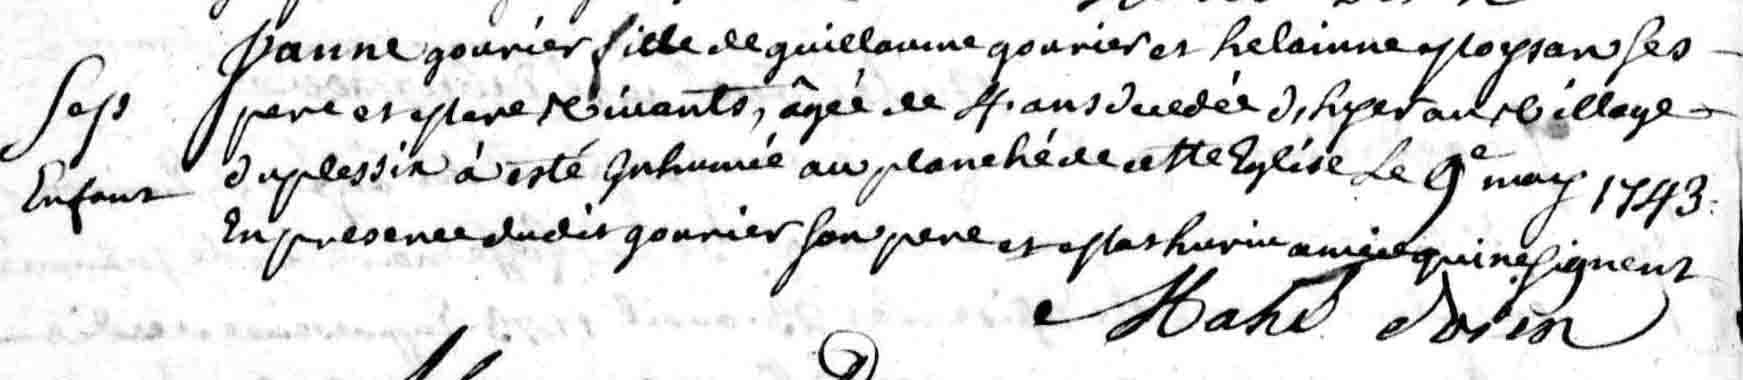 Janne gourier fille de guillaume gourier et helainne Moysan ses
Sep pere et Mere Vivants, âgée de 4 ans decedée d'hyer au Village
Enfant duplessix à esté Inhumée au planché de cette Eglise Le 9e may 1743.
En presence dudit gourier son pere et Mathurin qui ne signent
Mahé